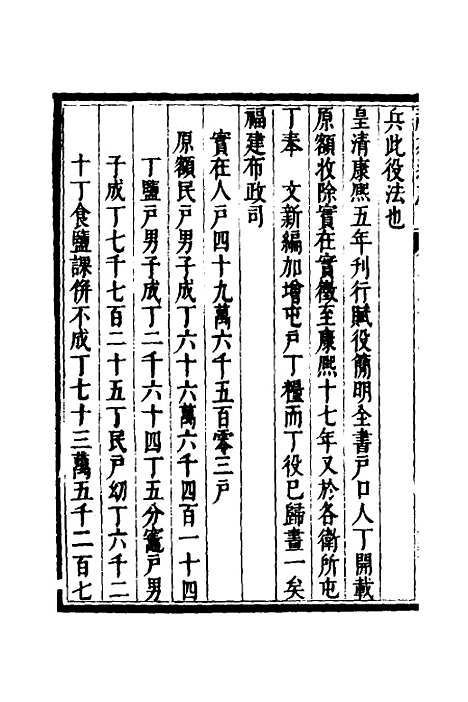 兵此役法也
皇清康熙五年刊行賦役簡明全書戸口人丁開載
原額收除實在實徵至康熙十七年又於各衛所屯
丁奉　文新編加增屯戸丁糧而丁役已歸畫一矣
福建布政司
實在人戸四十九萬六千五百零三戸
原額民戸男子成丁六十六萬六千四百一十四
丁鹽戸男子成丁二千六十四丁五分竈戸男
子成丁七千七百二十五丁民戸幼丁六千二
十丁食鹽課併不成丁七十三萬五千二百七